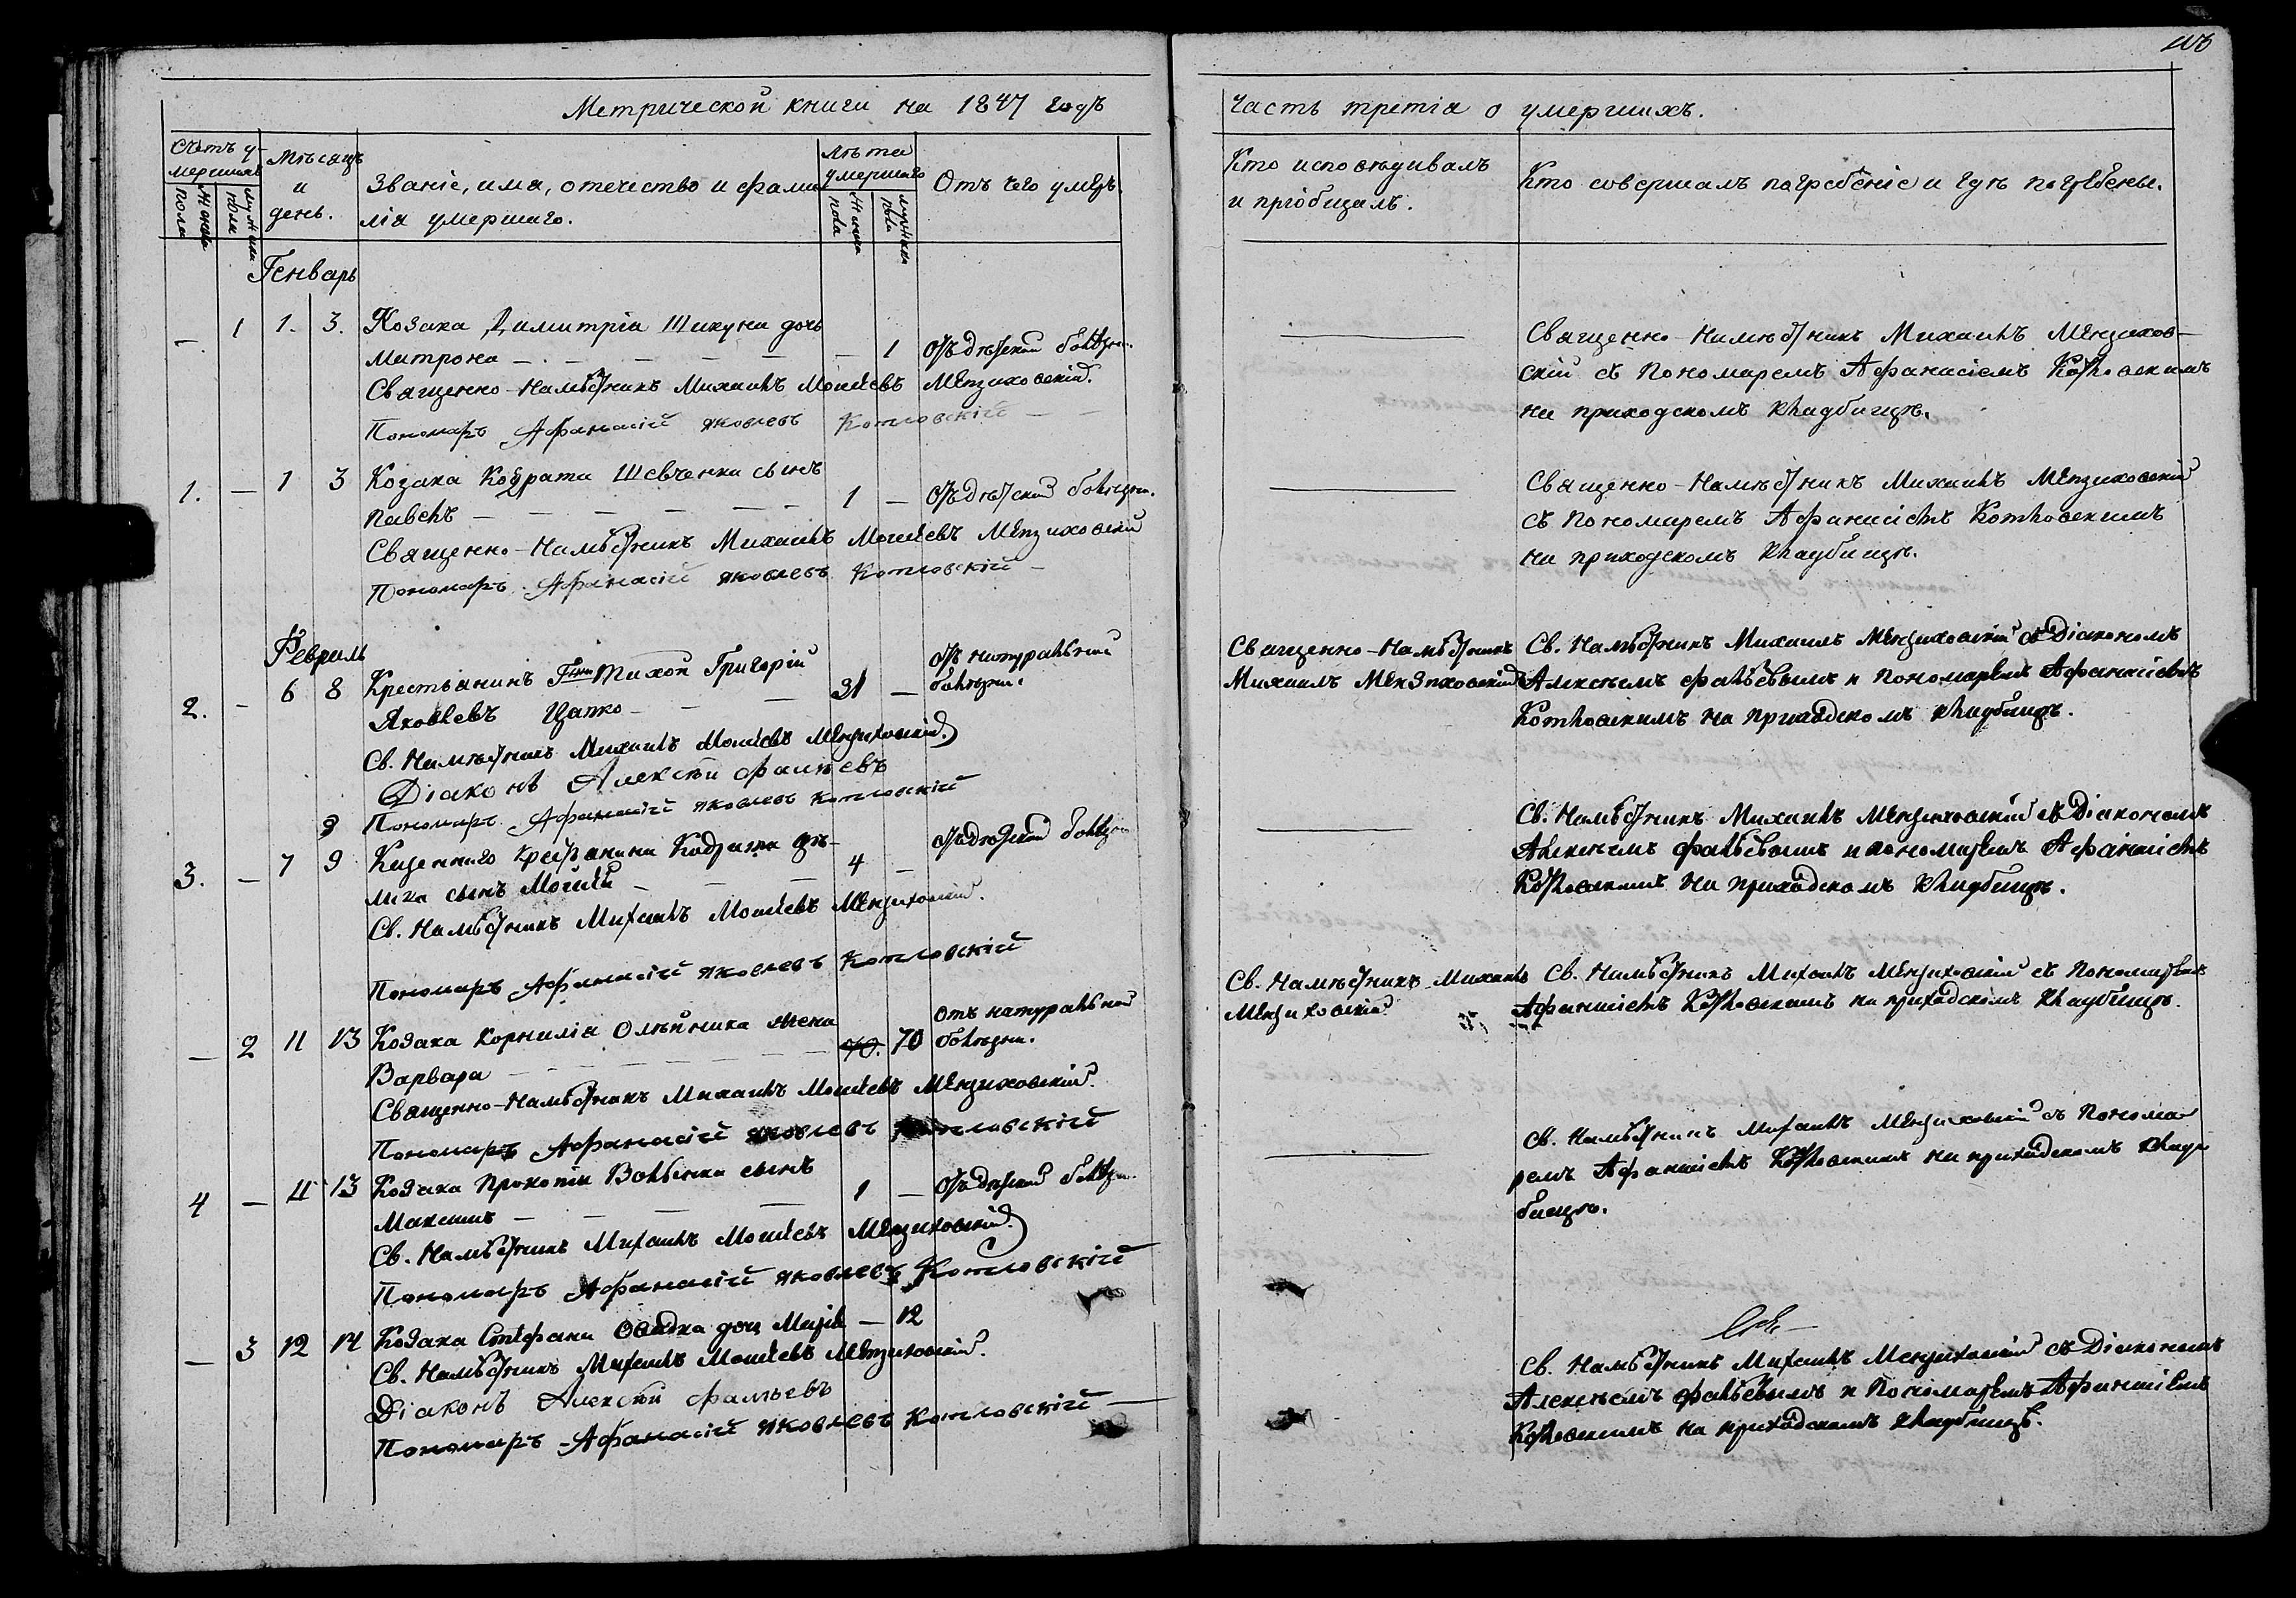 Метрической книги на 1847 годъ
Счетъ у-
мершихъ
Мѣсяцъ
и
день.
Званіе, имя, отечество и фами
лія умершаго.
Лѣта
умершаго
Отъ чего умеръ.
Генварь
— 1 1. 3. Козака Димитрія Шикуна дочь
Матрона — — — — — 1 Отъ дѣтской болѣзни.
Священно-Намѣстникъ Михаилъ Моисеевъ Мензиховскій.
Пономарь Афанасій Яковлевъ Котловскій — —
1. — 1 3 Козака Кодрата Шевченка сынъ
Павелъ — — — — — 1 — Отъ дѣтской болѣзни.
Священно-Намѣстникъ Михаилъ Моисеевъ Мензиховскій
Пономарь Афанасій Яковлевъ Котловскій —
Февраль
2. — 6 8 Крестьянинъ Тихон Григорій
Яковлевъ Цапко — — 31 — Отъ натуральной
болѣзни.
Св. Намѣстникъ Михаилъ Моисеевъ Мензиховскій.
Діаконъ Алексѣй Фалѣевъ
Пономарь Афанасій Яковлевъ Котловскій
3. — 7 9 Казеннаго крестьянина Кодрата
сынъ Моисей — — — 4 — Отъ дѣтской болѣзни
Св. Намѣстникъ Михаилъ Моисеевъ Мензиховскій.
Пономарь Афанасій Яковлевъ Котловскій
— 2 11 13 Козака Корнилія Олѣйника жена
Варвара — — — — 70. 70 Отъ натуральной
болѣзни.
Священно-Намѣстникъ Михаилъ Моисеевъ Мензиховскій.
Пономарь Афанасій Яковлевъ Котловскій
4 — 11 13 Козака Прокопія Волынка сынъ
Максимъ — — — — 1 — Отъ дѣтской болѣзни.
Св. Намѣстникъ Михаилъ Моисеевъ Мензиховскій.
Пономарь Афанасій Яковлевъ Котловскій
— 3 12 14 Козака Стефана дочь Марія — 12
Св. Намѣстникъ Михаилъ Моисеевъ Мензиховскій.
Діаконъ Алексѣй Фалѣевъ
Пономарь Афанасій Яковлевъ Котловскій —
Часть третія о умершихъ.
Кто исповѣдивалъ
и пріобщалъ.
Кто совершалъ погребеніе и гдѣ погребены.
Священно-Намѣстникъ Михаилъ Мензихов-
скій съ Пономаремъ Афанасіемъ Котловскимъ
на приходскомъ кладбищѣ.
Священно-Намѣстникъ Михаилъ Мензиховскій
съ Пономаремъ Афанасіемъ Котловскимъ
на приходскомъ кладбищѣ.
Священно-Намѣстникъ
Михаилъ Мензиховскій
Св. Намѣстникъ Михаилъ Мензиховскій съ Діакономъ
Алексѣемъ Фалѣевымъ и Пономаремъ Афанасіемъ
Котловскимъ на приходскомъ кладбищѣ.
Св. Намѣстникъ Михаилъ Мензиховскій съ Діакономъ
Алексѣемъ Фалѣевымъ и пономаремъ Афанасіемъ
Котловскимъ на приходскомъ кладбищѣ.
Св. Намѣстникъ Михаилъ
Мензиховскій
Св. Намѣстникъ Михаилъ Мензиховскій съ Пономаремъ
Афанасіемъ Котловскимъ на приходскомъ кладбищѣ.
Св. Намѣстникъ Михаилъ Мензиховскій съ Понома
ремъ Афанасіемъ Котловскимъ на приходскомъ клад
бищѣ.
Св. Намѣстникъ Михаилъ Мензиховскій съ Діакономъ
Алексѣемъ Фалѣевымъ и Пономаремъ Афанасіемъ
Котловскимъ на приходскомъ кладбищѣ.